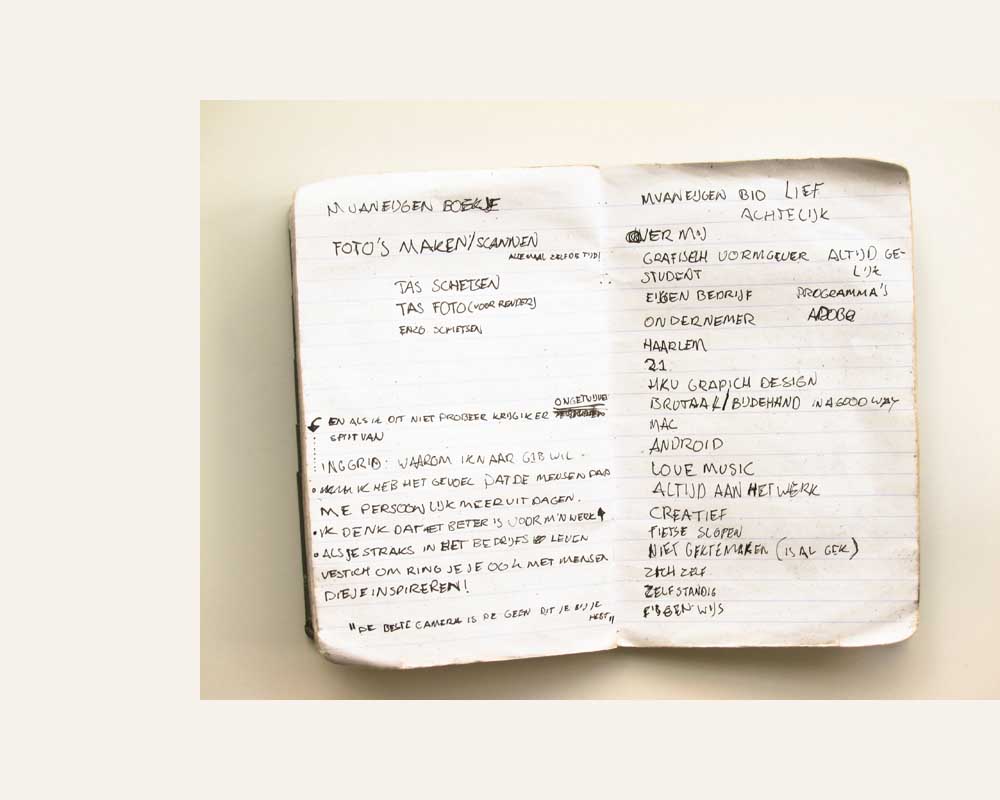 MVANEIJGEN BOEKJE
FOTO'S MAKEN/SCANNEN
ALLEMAAL ZELFDE TIJD!
TAS SCHETSEN
TAS FOTO (VOOR RENDER)
ENZO SCHETSEN
ONGETWIJFELD
EN ALS IK DIT NIET PROBEER KRIJG IK ER
SPIJT VAN
INGGRID: WAAROM IK NAAR G1B WIL -
IK HEB HET GEVOEL DAT DE MENSEN DAAR
ME PERSOONLIJK MEER UIT DAGEN.
• IK DENK DAT HET BETER IS VOOR M'N WERK
• ALS JE STRAKS IN HET BEDRIJFS LEVEN
VESTIGT OM RING JE JE OOK MET MENSEN
DIE JE INSPIREREN!
"DE BESTE CAMERA IS DE GEEN DIT JE BIJ JE
HEBT"
MVANEIJGEN BIO LIEF
ACHTELIJK
OVER MIJ
GRAFISCH VORMGEVER ALTIJD GE-
STUDENT LIJK
EIGEN BEDRIJF PROGRAMMA'S
ONDERNEMER ADOBE
HAARLEM
21
HKU GRAPICH DESIGN
BRUTAAL/BIJDEHAND IN A GOOD WAY
MAC
ANDROID
LOVE MUSIC
ALTIJD AAN HET WERK
CREATIEF
FIETSE SLOPEN
NIET GEK TE MAKEN (IS AL GEK)
ZICH ZELF
ZELFSTANDIG
EIGEN WIJS